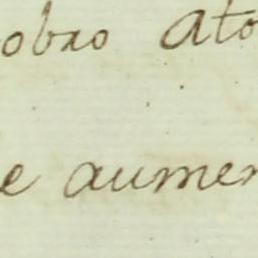 obro Ato
e aumen